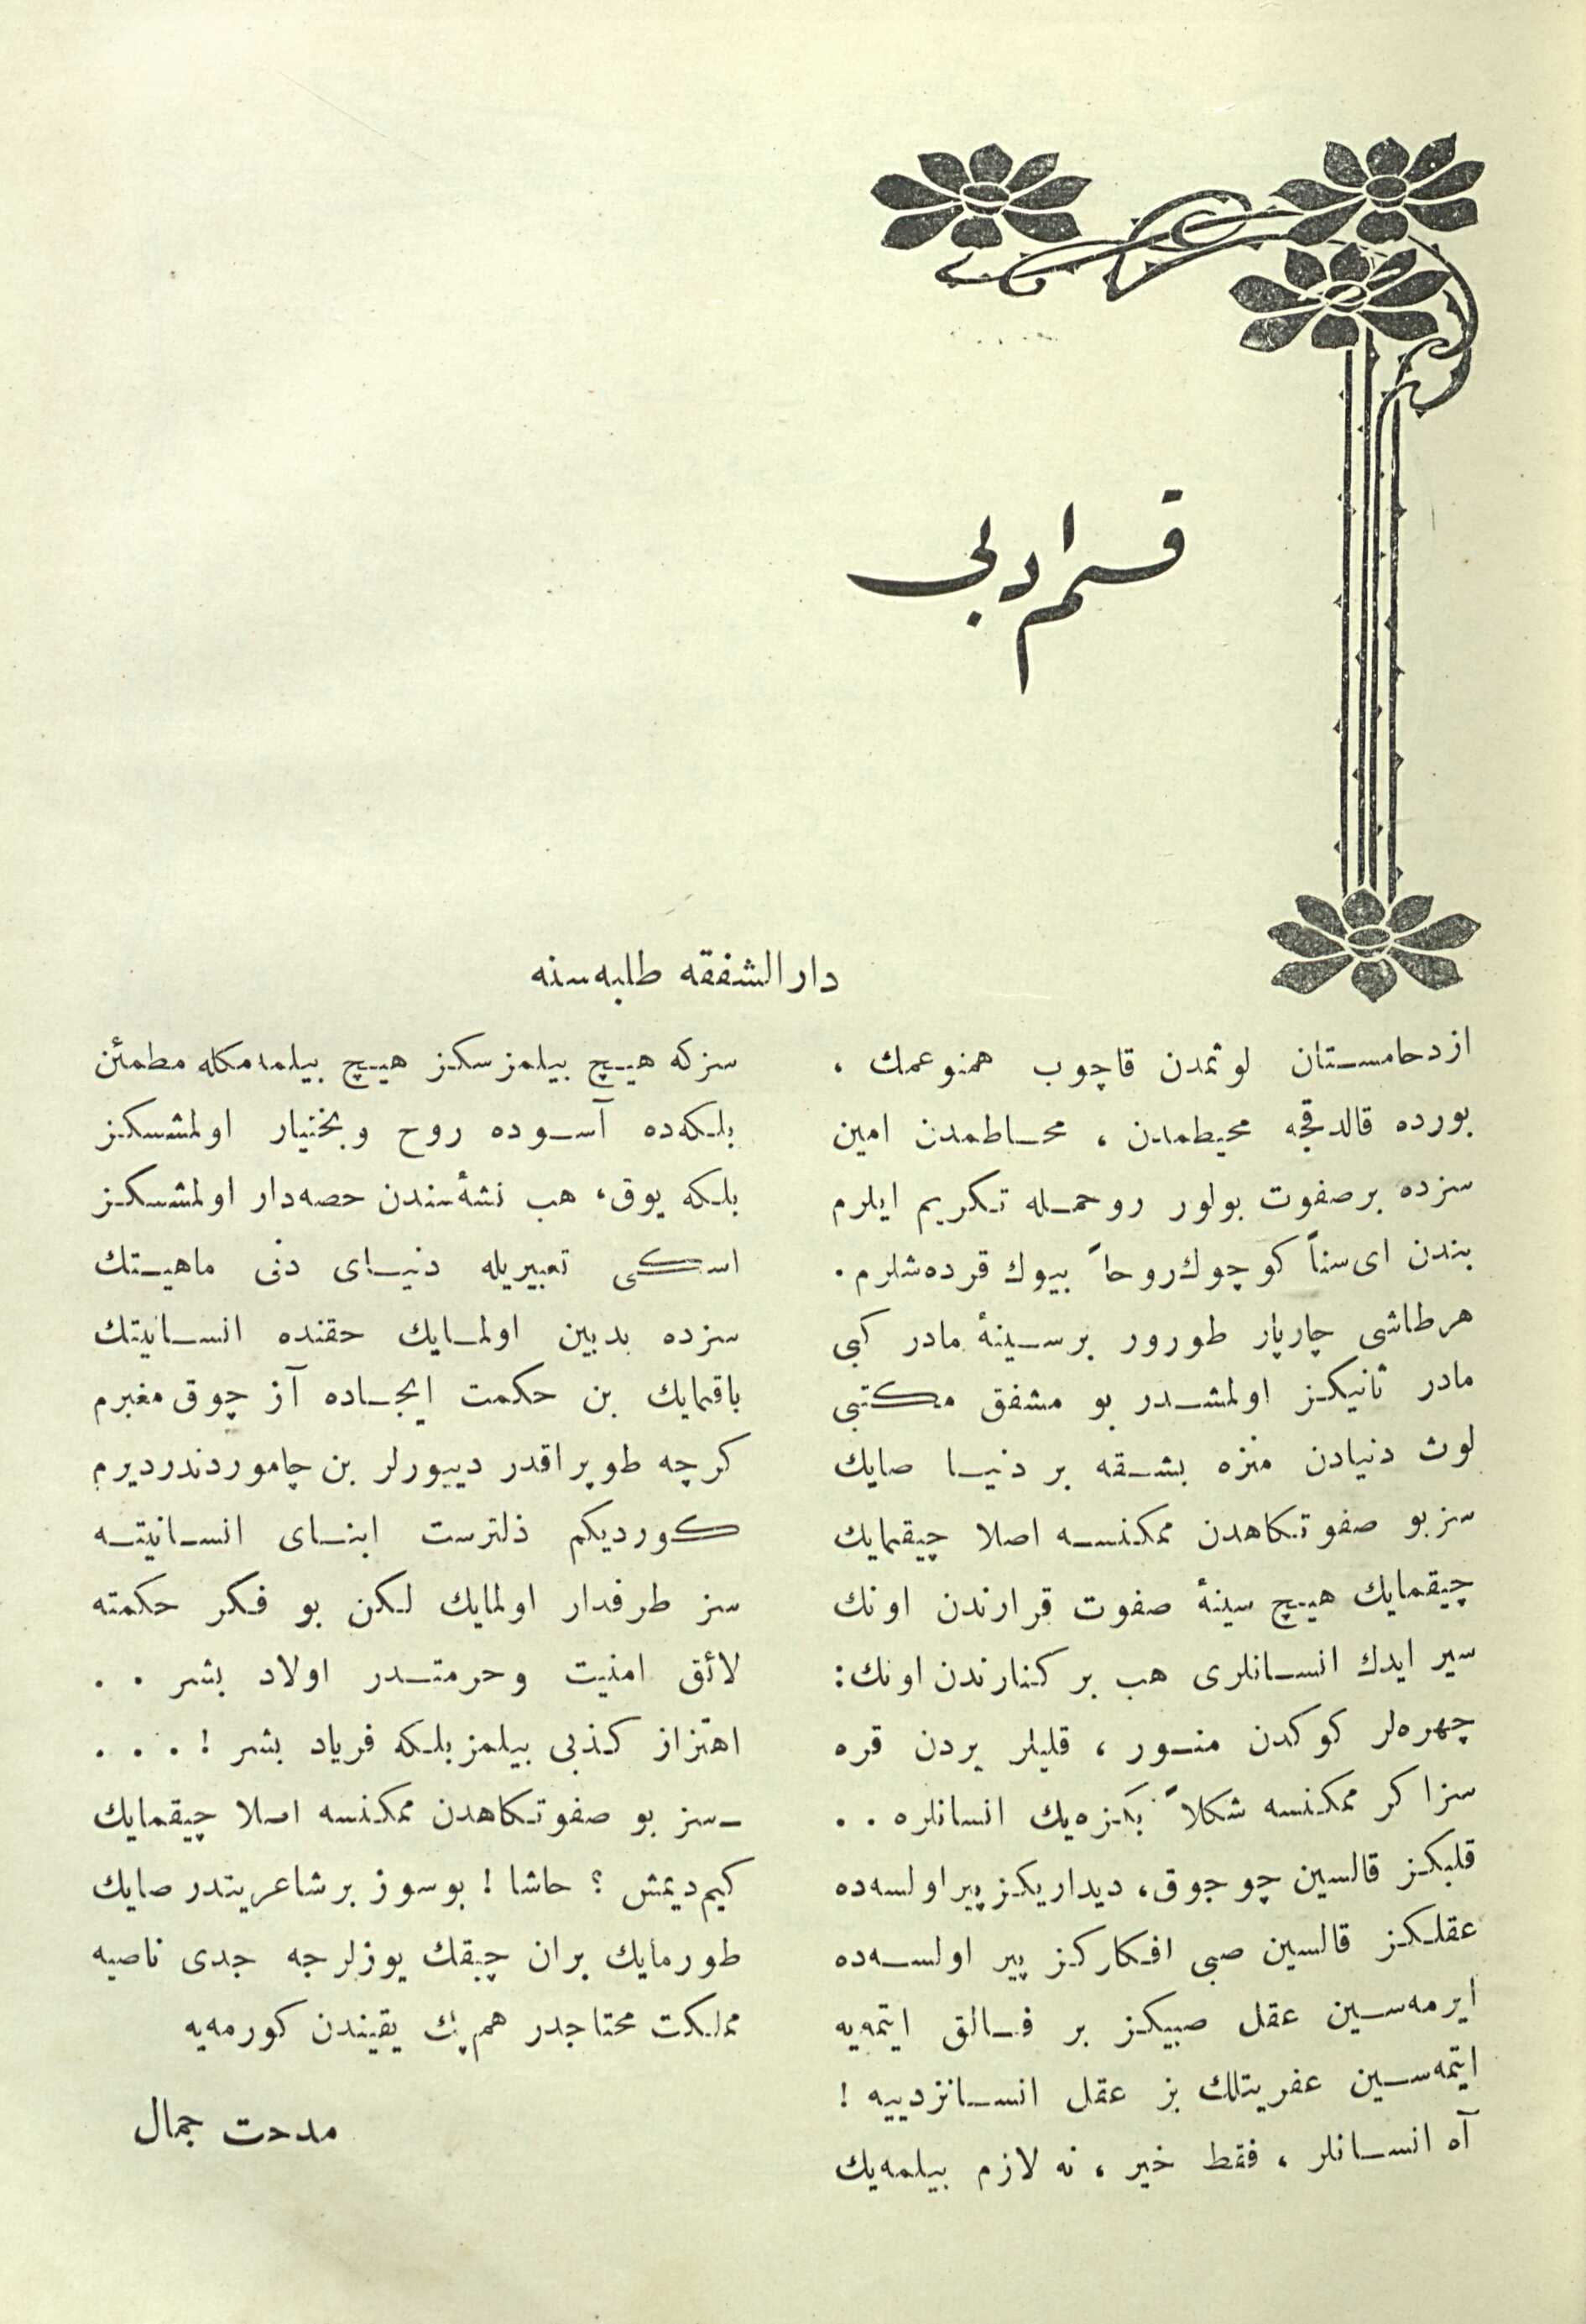 قسم ادبی
دار الشفقه طلبه‌سنه
ازدحامستان لوثمدن قاچوب همنوعمك ،
بورده قالدقجه محیطمدن ، محاطمدن امین
سزده برصفوت بولور روحمله تكریم ایلرم
بندن ای سناً كوچوك روحاً بیوك قرده‌شلرم.
هرطاشی چارپار طورور برسینهٔ مادر كبی
مادر ثانیكز اولمشدر بو مشفق مكتبی
لوث دنیادن منزه بشقه بر دنیا صایك
سز بو صفوتكاهدن ممكنسه اصلا چیقمایك
چیقمایك هیچ سینهٔ صفوت قرارندن اونك
سیر ایدك انسانلری هب بر كنارندن اونك:
چهره‌لر كوكدن منور ، قلبلر یردن قره
سزاكر ممكنسه شكلاً بكزه‌یك انسانلره . .
قلبكز قالسین چوجوق، دیداریكز پیر اولسه‌ده
عقلكز قالسین صبی افكاركز پیر اولسه‌ده
ایرمه‌سین عقل صبیكز بر فالق ایتمه‌یه
ایتمه‌سین عفریتلك بز عقل انسانزدییه !
آه انسانلر ، فقط خیر ، نه لازم بیلمه‌یك
سزكه هیچ بیلمزسكز هیچ بیلمه‌مكله مطمئن
بلكه‌ده آسوده روح وبختیار اولمشسكز
بلكه یوق، هب نشهٔسندن حصه‌دار اولمشسكز
اسكی تعبیریله دنیای دنی ماهیتك
سزده بدبین اولمایك حقنده انسانیتك
باقمایك بن حكمت ایجاده آز چوق مغبرم
كرچه طوپراقدر دییورلر بن چاموردندردیرم
كوردیكم ذلترست ابنای انسانیته
سز طرفدار اولمایك لكن بو فكر حكمته
لائق امنیت وحرمتدر اولاد بشر . .
اهتزاز كذبی بیلمز بلكه فریاد بشر ! . . .
ـسز بو صفوتكاهدن ممكنسه اصلا چیقمایك
كیم دیمش ؟ حاشا ! بوسوز برشاعریتدر صایك
طورمایك بران چیقك یوزلرجه جدی ناصیه
مملكت محتاجدر هم پك یقیندن كورمه‌یه
مدحت جمال